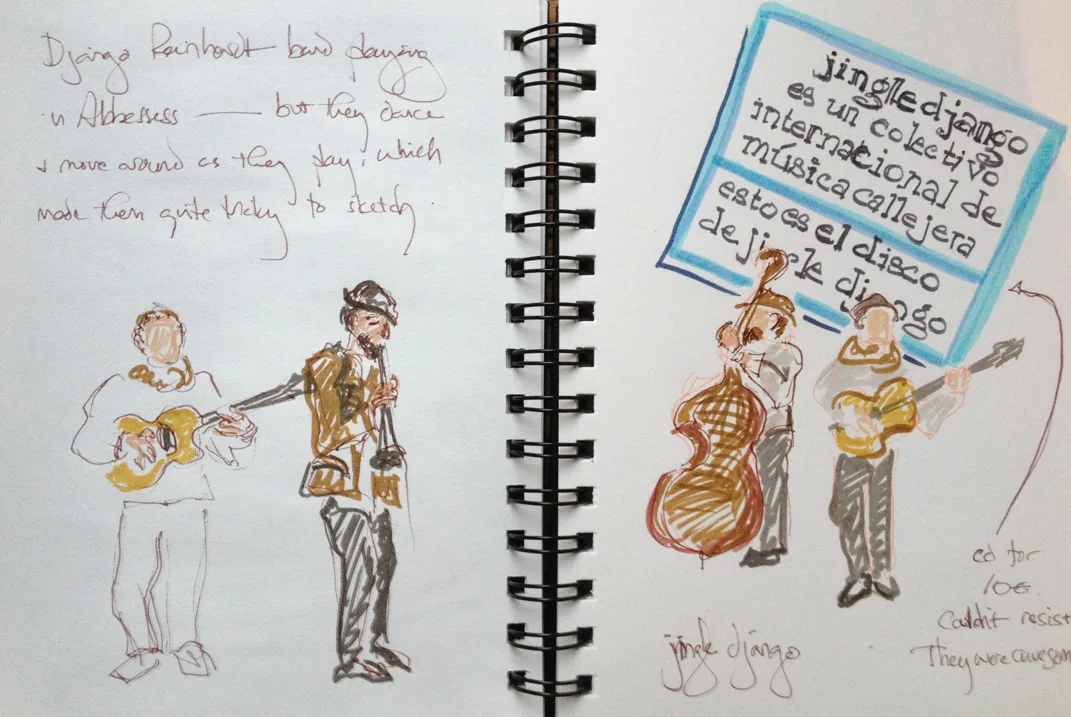 Django Reinhardt band playing
in Abbessess — but they dance
+ move around as they play, which
made them quite tricky to sketch.
jingle django
es un colectivo
internacional de
música callejera
esto es el disco
de jingle django
cd for
10€.
Couldn't resist
They were awesom
jingle django